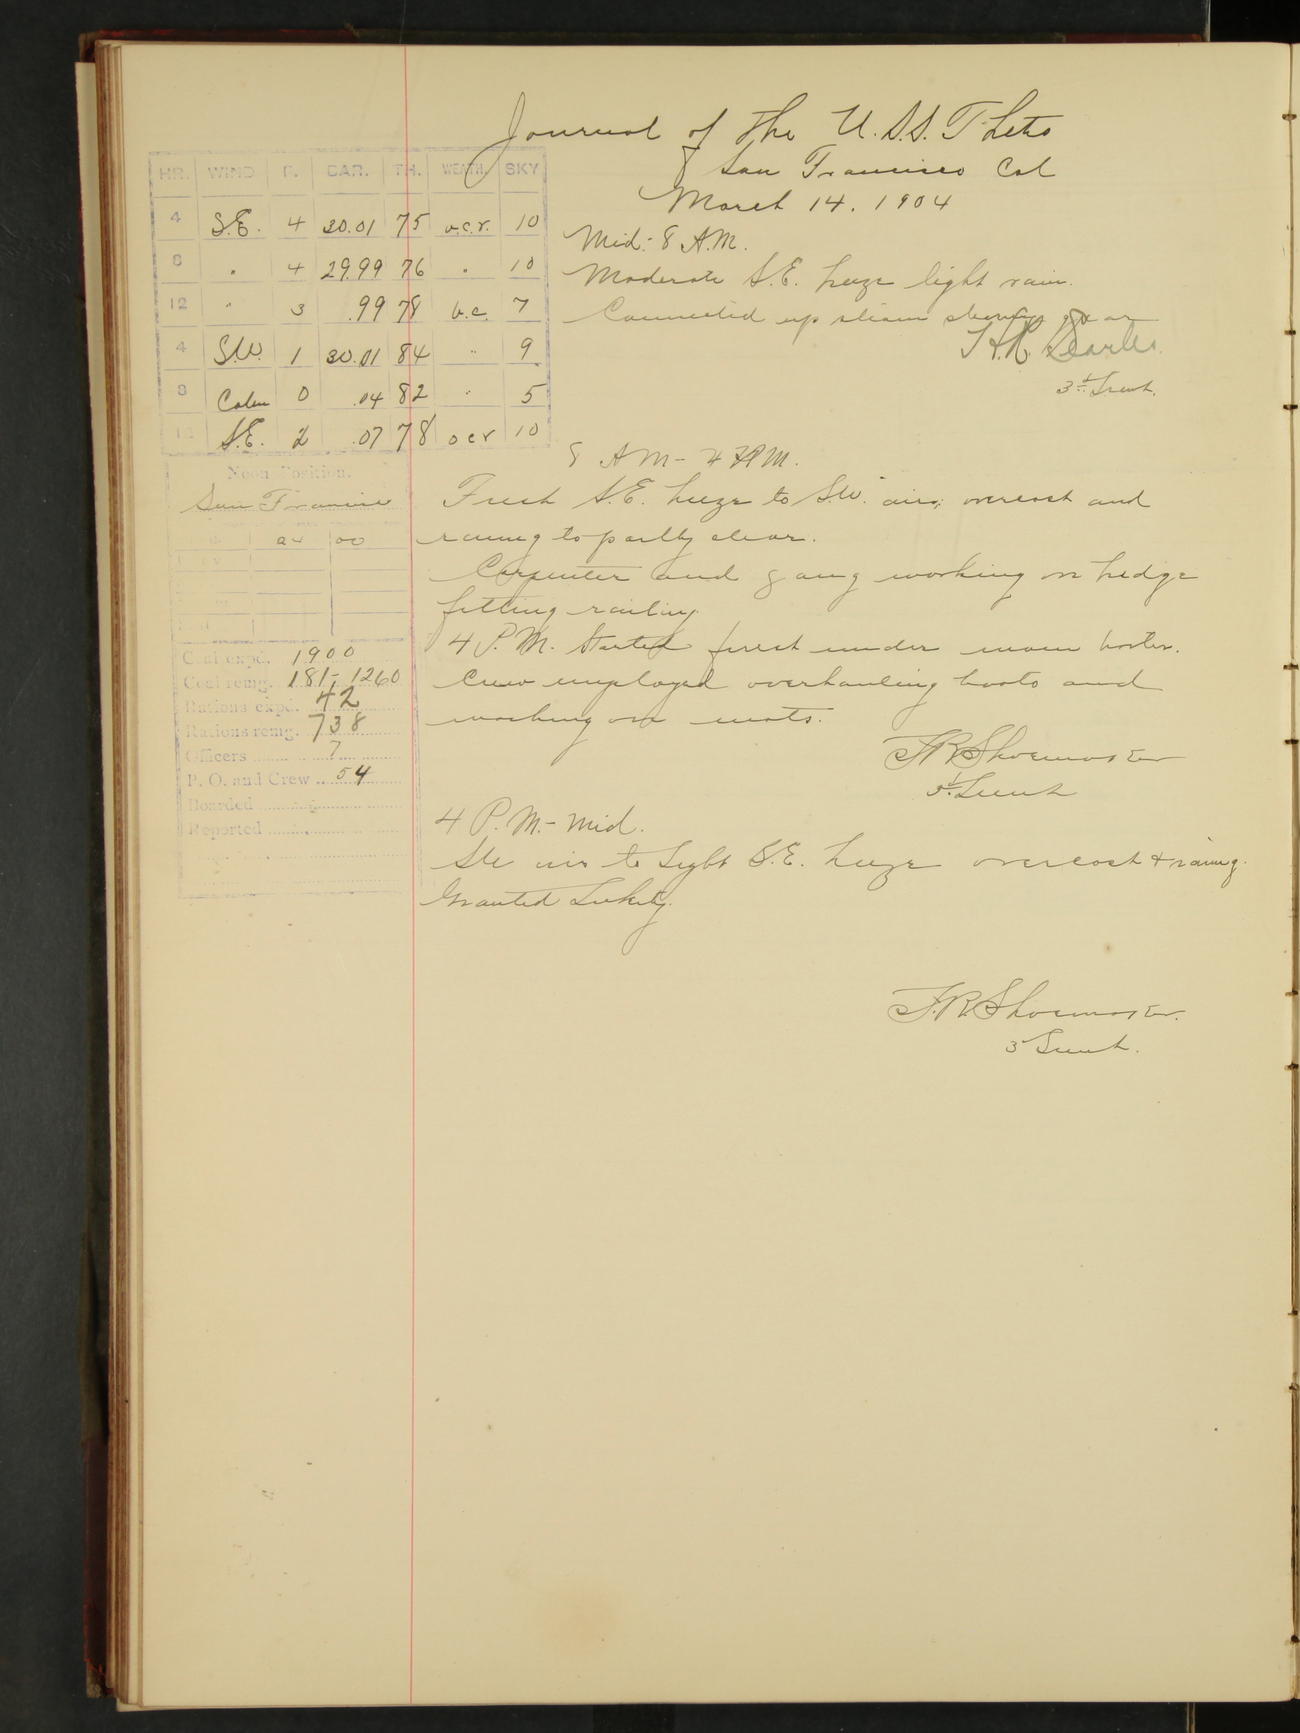 Journal of the U.S.S. Thetis
San Francisco Cal
March 14. 1904
HR. WIND F. BAR. TH. WEATH. SKY
4 S.E. 4 30.01 75 o.c.r. 10
8 " 4 29.99 76 " 10
12 " 3 .99 78 b.c. 7
4 S.W. 1 30.01 84 " 9
8 Calm 0 .04 82 " 5
12 S.E. 2 .07 78 o c r 10
Noon Position.
San Francisco
at
Coal expd. 1900
Coal remg. 181-1260
Rations expd. 42
Rations remg. 738
Officers 7
P. O. and Crew 54
Boarded
Reported
Mid.- 8 A.M.
Moderate S.E. breeze light rain.
Connected up steam steering gear
3d Lieut.
8 A M - 4 P.M.
Fresh S.E. breeze to S.W. airs; overcast and
raining to partly clear.
Carpenter and gang working on bridge
fitting railing.
4 P.M. Started fires under main boiler.
Crew employed overhauling boats and
working on mats.
F.R. Shoemaker
3d Lieut
4 P.M.- Mid.
SW airs to Light S.E. breeze overcast & raining.
Granted Liberty.
F.R. Shoemaker.
3 Lieut.